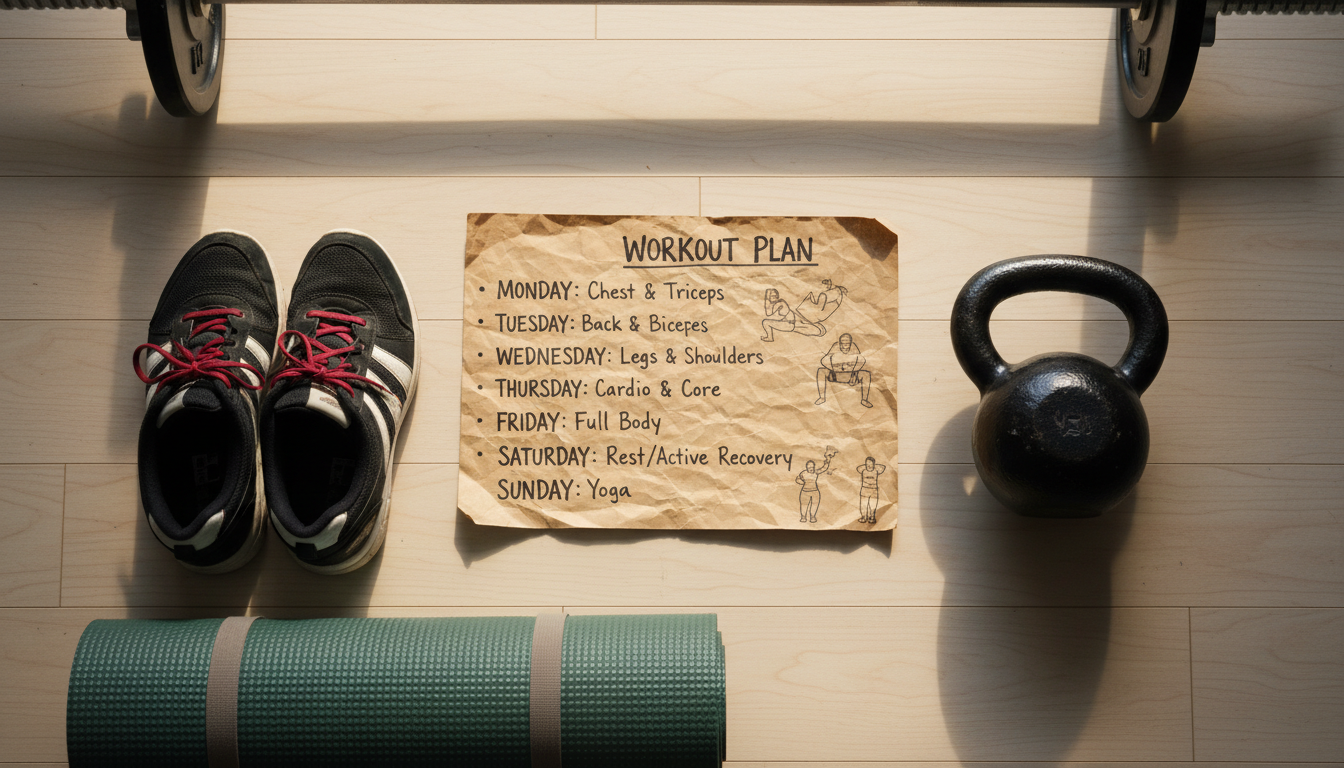 WORKOUT PLAN
• MONDAY: Chest & Triceps
• TUESDAY: Back & Bicepes
• WEDNESDAY: Legs & Shoulders
• THURSDAY: Cardio & Core
• FRIDAY: Full Body
• SATURDAY: Rest/Active Recovery
SUNDAY: Yoga